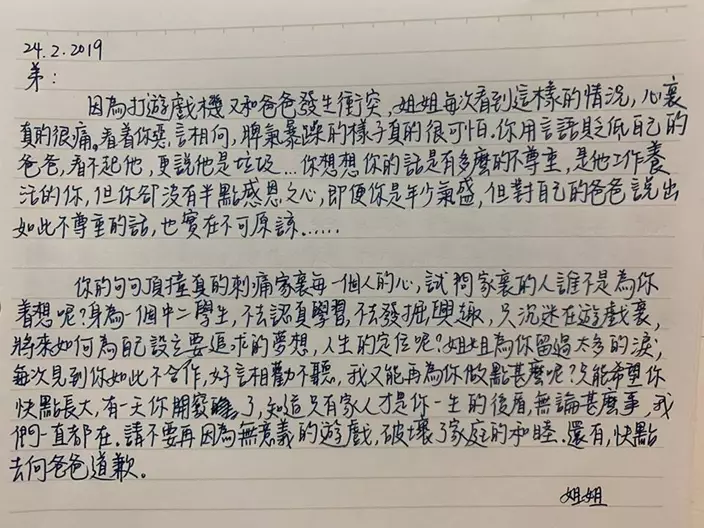 24.2.2019
弟：
因為打遊戲機又和爸爸發生衝突，姐姐每次看到這樣的情況，心裏
真的很痛。看着你惡言相向，脾氣暴躁的樣子真的很可怕。你用言語貶低自己的
爸爸，看不起他，更說他是垃圾...你想想你的話是有多麼的不尊重，是他工作養
活的你，但你卻沒有半點感恩之心，即便你是年少氣盛，但對自己的爸爸說出
如此不尊重的話，也實在不可原諒......
你的句句頂撞真的刺痛家裏每一個人的心，試問家裏的人誰不是為你
着想呢？身為一個中二學生，不去認真學習，不去發掘興趣，只沉迷在遊戲裏，
將來如何為自己設立要追求的夢想，人生的定位呢？姐姐為你留過太多的淚，
每次見到你如此不合作，好言相勸不聽，我又能再為你做點甚麼呢？只能希望你
快點長大，有一天你開竅了，知道只有家人才是你一生的後盾，無論甚麼事，我
們一直都在。請不要再因為無意義的遊戲，破壞了家庭的和睦。還有，快點
去向爸爸道歉。
姐姐